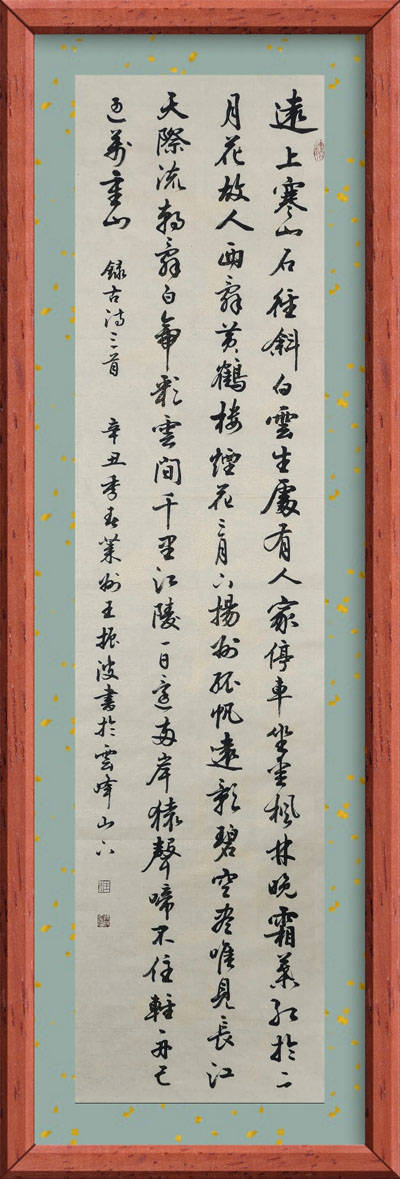 遠上寒山石徑斜白雲生處有人家停車坐愛楓林晚霜葉紅於二
月花故人西辭黃鶴樓煙花三月下揚州孤帆遠影碧空盡唯見長江
天際流朝辭白帝彩雲間千里江陵一日還兩岸猿聲啼不住輕舟已
過萬重山 錄古詩三首 辛丑季春萊州王振波書於雲峰山下